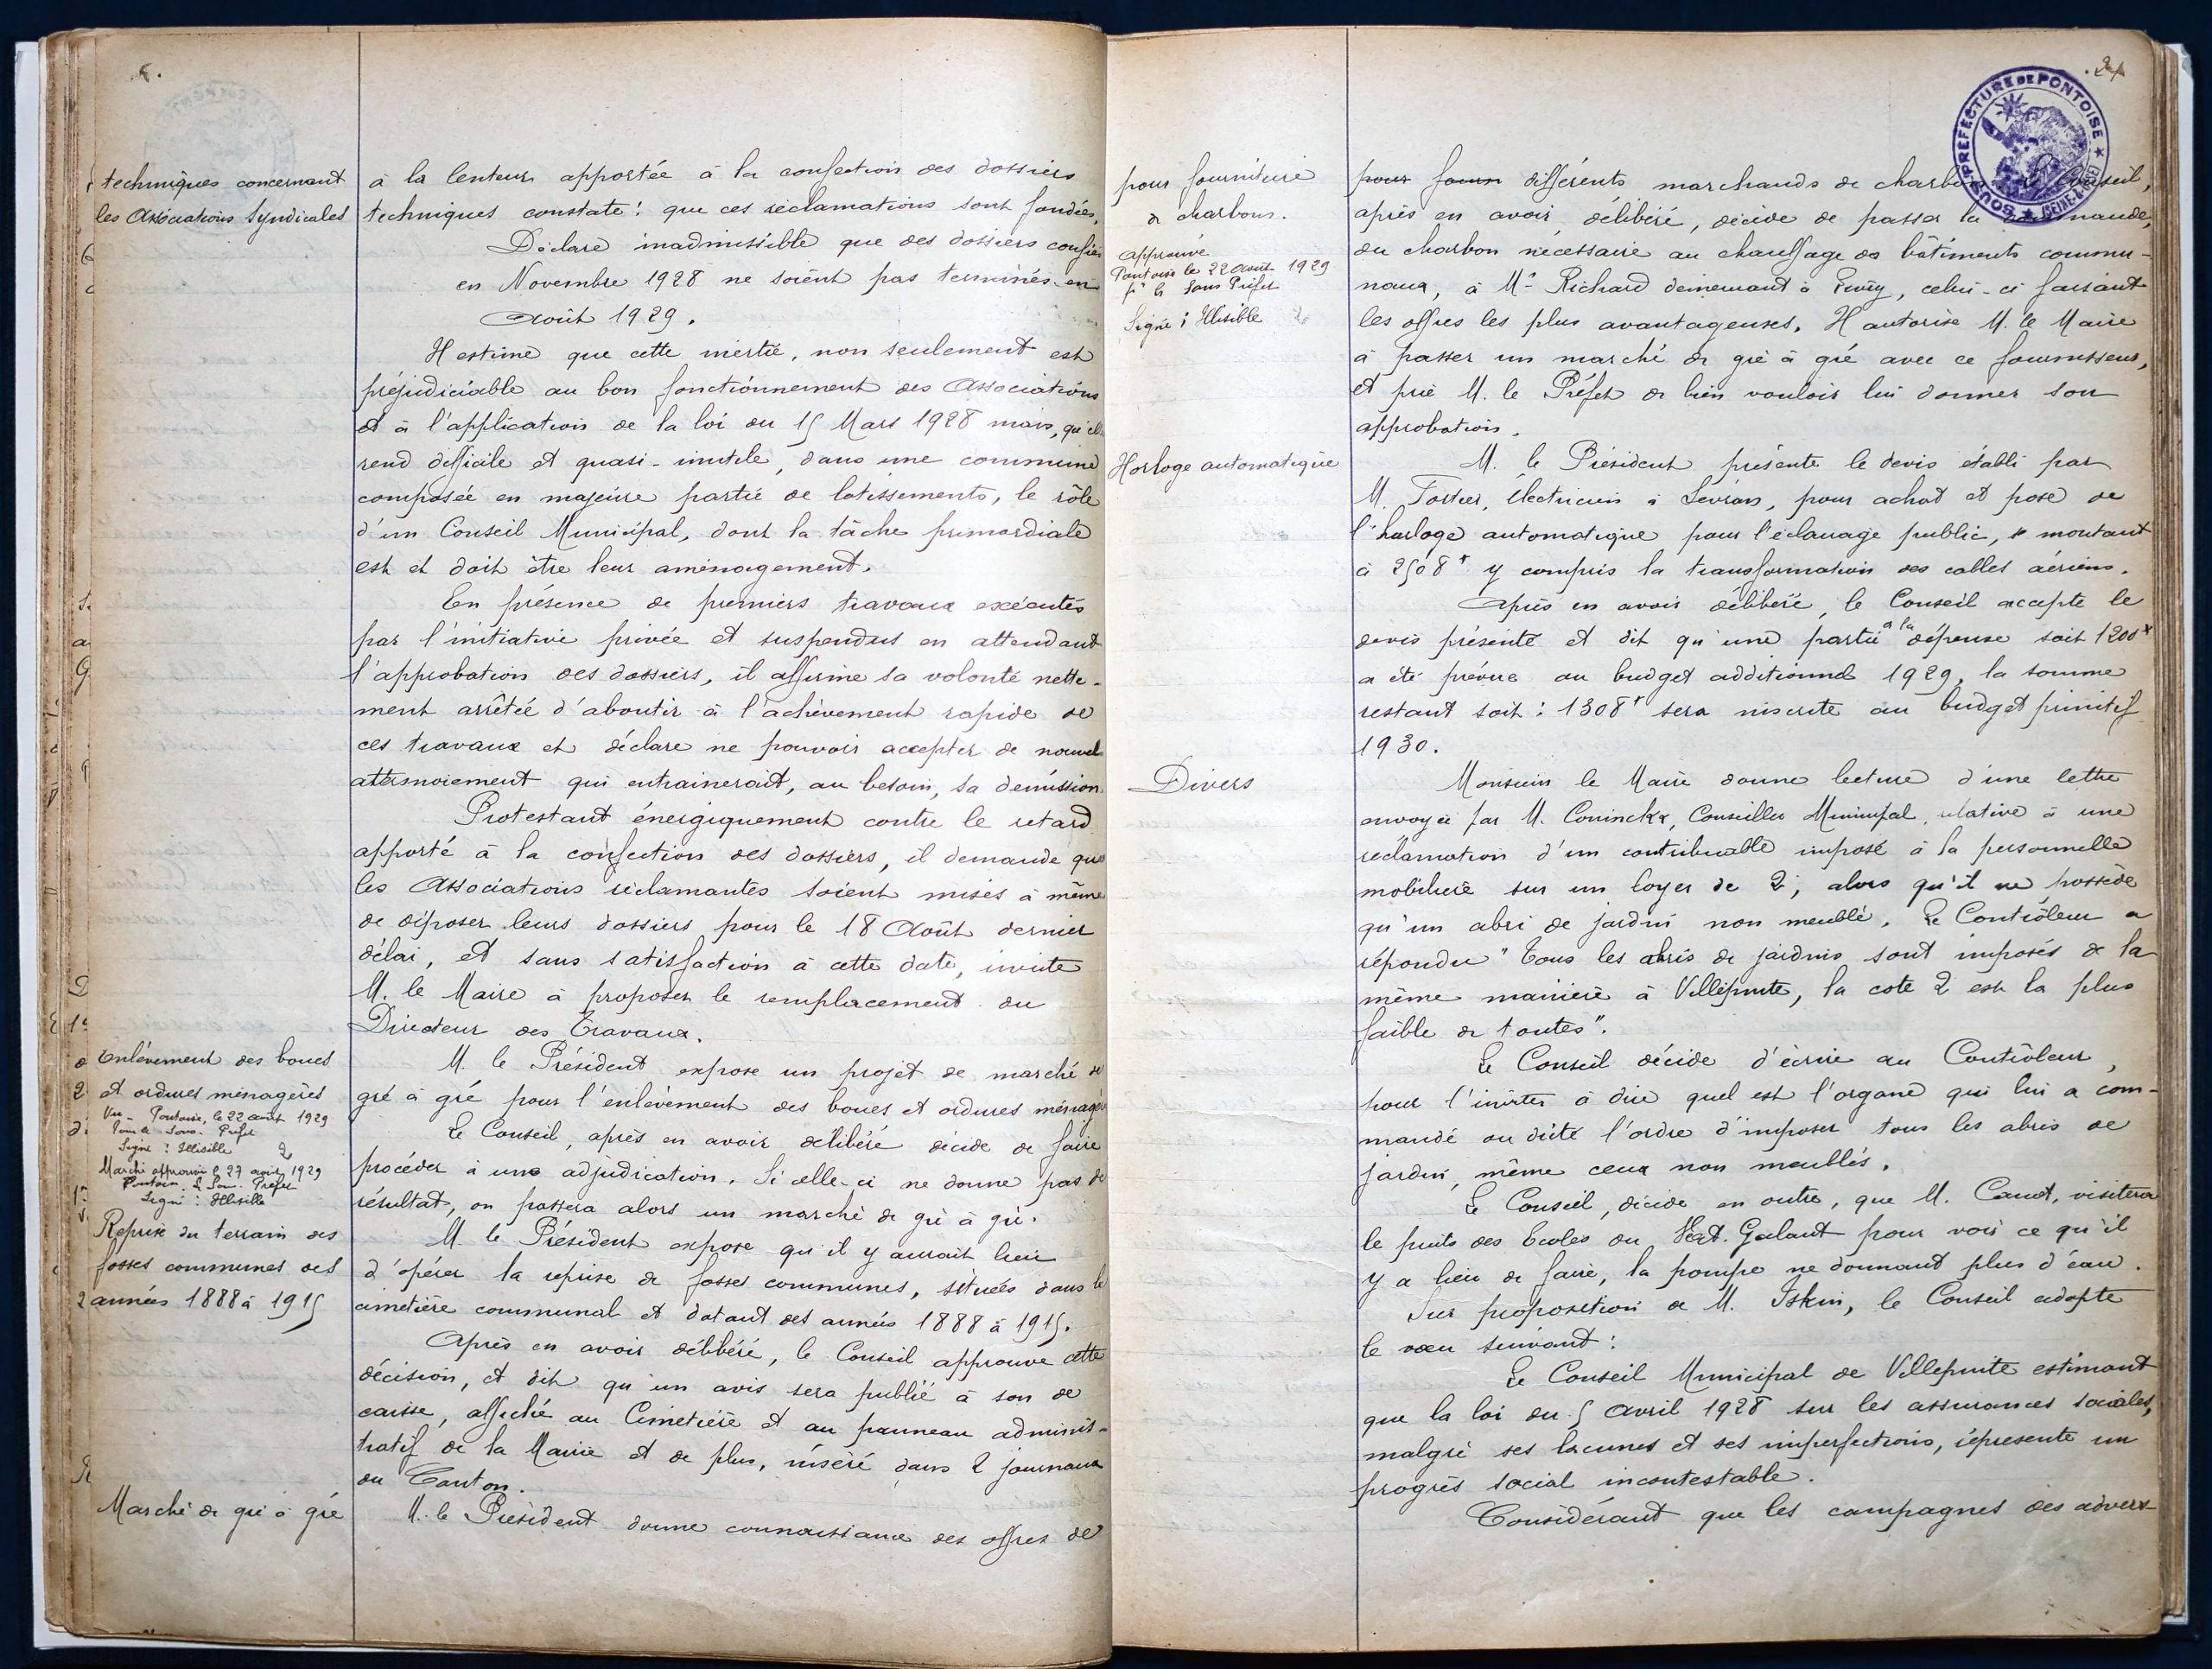 techniques concernant
les Associations Syndicales
à la lenteur apportée à la confection des dossiers
techniques constate : que ces réclamations sont fondées.
Déclare inadmissible que des dossiers confiés
en Novembre 1928 ne soient pas terminés en
Août 1929.
Il estime que cette inertie, non seulement est
préjudiciable au bon fonctionnement des Associations
et à l'application de la loi du 15 Mars 1928 mais, qu'elle
rend difficile et quasi-inutile, dans une commune
composée en majeure partie de lotissements, le rôle
d'un Conseil Municipal, dont la tâche primordiale
est et doit être leur aménagement.
En présence de premiers travaux exécutés
par l'initiative privée et suspendus en attendant
l'approbation des dossiers, il affirme sa volonté nette-
ment arrêtée d'aboutir à l'achèvement rapide de
ces travaux et déclare ne pouvoir accepter de nouvel
attermoiement qui entrainerait, au besoin, sa démission.
Protestant énergiquement contre le retard
apporté à la confection des dossiers, il demande que
les Associations réclamantes soient mises à même
de déposer leurs dossiers pour le 18 Août dernier
délai, et sans satisfaction à cette date, invite
M. le Maire à proposer le remplacement du
Directeur des Travaux.
Enlèvement des boues
et ordures ménagères
Vu - Pontoise, le 22 août 1929
Pour le Sous-Préfet
Signé : Illisible
Marché approuvé le 27 août 1929
Pontoise. Le Sous-Préfet
Signé : Illisible
M. le Président expose un projet de marché de
gré à gré pour l'enlèvement des boues et ordures ménagères
Le Conseil, après en avoir délibéré décide de faire
procéder à une adjudication. Si celle-ci ne donne pas de
résultat, on passera alors un marché de gré à gré.
Reprise du terrain des
fosses communes des
années 1888 à 1915
M. le Président expose qu'il y aurait lieu
d'opérer la reprise de fosses communes, situées dans le
cimetière communal et datant des années 1888 à 1915.
Après en avoir délibéré, le Conseil approuve cette
décision, et dit qu'un avis sera publié à son de
caisse, affiché au Cimetière et au panneau adminis-
tratif de la Mairie et de plus, inséré dans 2 journaux
du Canton.
Marché de gré à gré
M. le Président donne connaissance des offres de
SOUS-PREFECTURE DE PONTOISE
pour fourniture
de charbons.
approuvé
Pontoise le 22 Août 1929
pr le Sous Préfet
Signé : Illisible
pour fourn différents marchands de charbon. Le Conseil,
après en avoir délibéré, décide de passer la commande,
du charbon nécessaire au chauffage des bâtiments commu-
naux, à Mr Richard demeurant à , celui-ci faisant
les offres les plus avantageuses. Il autorise M. le Maire
à passer un marché de gré à gré avec ce fournisseur,
et prie M. le Préfet de bien vouloir lui donner son
approbation.
Horloge automatique
M. le Président présente le devis établi par
M. Fortier, électricien à Sevran, pour achat et pose de
l'horloge automatique pour l'éclairage public, montant
à 2508f y compris la transformation des cables aériens.
Après en avoir délibéré, le Conseil accepte le
devis présenté et dit qu'une partie de la dépense soit 1200f
a été prévue au budget additionnel 1929, la somme
restant soit : 1308f sera inscrite au budget primitif
1930.
Divers
Monsieur le Maire donne lecture d'une lettre
envoyée par M. Coninckx, Conseiller Municipal, relative à une
réclamation d'un contribuable imposé à la personnelle
mobilière sur un loyer de 2f, alors qu'il ne possède
qu'un abri de jardin non meublé. Le Contrôleur a
répondu "Tous les abris de jardins sont imposés de la
même manière à Villepinte, la cote 2 est la plus
faible de toutes".
Le Conseil décide d'écrire au Contrôleur,
pour l'inviter à dire quel est l'organe qui lui a com-
mandé ou dicté l'ordre d'imposer tous les abris de
jardin, même ceux non meublés.
Le Conseil, décide en outre, que M. Canot, visitera
le puits des Ecoles du Vert-Galant pour voir ce qu'il
y a lieu de faire, la pompe ne donnant plus d'eau.
Sur proposition de M. Iskin, le Conseil adopte
le voeu suivant :
Le Conseil Municipal de Villepinte estimant
que la loi du 5 Avril 1928 sur les assurances sociales,
malgré ses lacunes et ses imperfections, représente un
progrès social incontestable.
Considérant que les campagnes des advers-